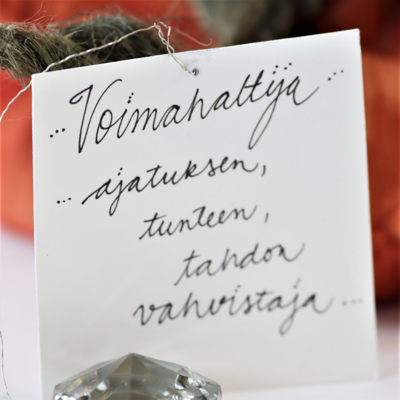 ... Voimahaltija ...
... ajatuksen,
tunteen,
tahdon
vahvistaja ...